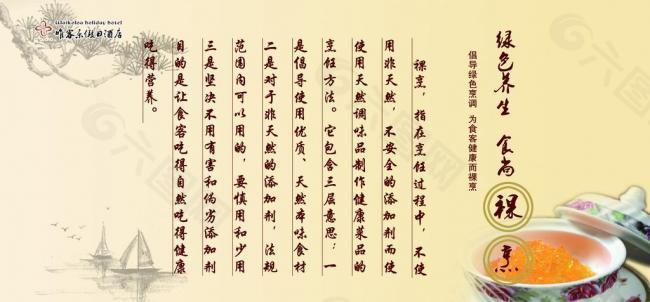 Waikeloa holiday hotel
唯客乐假日酒店
绿色养生 食尚裸烹
倡导绿色烹调 为食客健康而裸烹
裸烹，指在烹饪过程中，不使
用非天然，不安全的添加剂而使
使用天然调味品制作健康菜品的
烹饪方法。它包含三层意思：一
是倡导使用优质、天然本味食材
二是对于非天然的添加剂，法规
范围内可以用的，要慎用和少用
三是坚决不用有害和伪劣添加剂
目的是让食客吃得自然吃得健康
吃得营养。